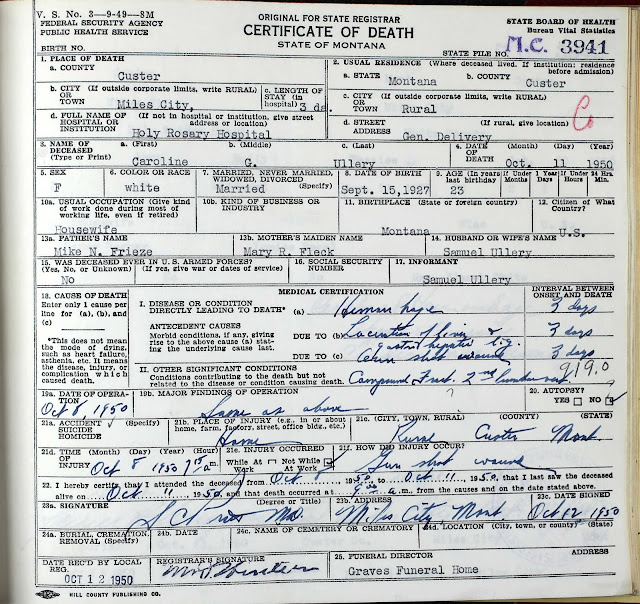 V. S. No. 3—9-49—8M
FEDERAL SECURITY AGENCY
PUBLIC HEALTH SERVICE
ORIGINAL FOR STATE REGISTRAR
CERTIFICATE OF DEATH
STATE OF MONTANA
STATE BOARD OF HEALTH
Bureau Vital Statistics
BIRTH NO.
STATE FILE NO. M.C. 3941
1. PLACE OF DEATH
a. COUNTY
Custer
2. USUAL RESIDENCE (Where deceased lived. If institution: residence before admission)
a. STATE Montana b. COUNTY Custer
b. CITY (If outside corporate limits, write RURAL)
OR
TOWN Miles City,
c. LENGTH OF STAY (in hospital) 3 da.
c. CITY (If outside corporate limits, write RURAL)
OR
TOWN Rural
d. FULL NAME OF HOSPITAL OR INSTITUTION (If not in hospital or institution, give street address or location)
Holy Rosary Hospital
d. STREET ADDRESS (If rural, give location)
Gen. Delivery
C
3. NAME OF DECEASED (Type or Print)
a. (First) b. (Middle) c. (Last)
Caroline G. Ullery
4. DATE OF DEATH (Month) (Day) (Year)
Oct. 11 1950
5. SEX
F
6. COLOR OR RACE
white
7. MARRIED, NEVER MARRIED, WIDOWED, DIVORCED (Specify)
Married
8. DATE OF BIRTH
Sept. 15,1927
9. AGE (In years last birthday)
23
If Under 1 Year
Months Days
If Under 24 Hrs.
Hours Min.
10a. USUAL OCCUPATION (Give kind of work done during most of working life, even if retired)
Housewife
10b. KIND OF BUSINESS OR INDUSTRY
11. BIRTHPLACE (State or foreign country)
Montana
12. Citizen of What Country?
U.S.
13a. FATHER'S NAME
Mike N. Frieze
13b. MOTHER'S MAIDEN NAME
Mary R. Fleck
14. HUSBAND OR WIFE'S NAME
Samuel Ullery
15. WAS DECEASED EVER IN U.S. ARMED FORCES?
(Yes, No, or Unknown) (If yes, give war or dates of service)
No
16. SOCIAL SECURITY NUMBER
17. INFORMANT
Samuel Ullery
18. CAUSE OF DEATH
Enter only 1 cause per line for (a), (b), and (c)
*This does not mean the mode of dying, such as heart failure, asthenia, etc. It means the disease, injury, or complication which caused death.
MEDICAL CERTIFICATION
INTERVAL BETWEEN ONSET AND DEATH
I. DISEASE OR CONDITION DIRECTLY LEADING TO DEATH* (a)
3 days
ANTECEDENT CAUSES
Morbid conditions, if any, giving rise to the above cause (a) stating the underlying cause last.
DUE TO (b) Laceration of liver &
gastro hepatic lig.
3 days
DUE TO (c) Gun shot wound
3 days
II. OTHER SIGNIFICANT CONDITIONS
Conditions contributing to the death but not related to the disease or condition causing death.
Compound Fract. 2nd lumbar
919.0
19a. DATE OF OPERATION
Oct 8, 1950
19b. MAJOR FINDINGS OF OPERATION
Same as above
20. AUTOPSY?
YES NO
21a. ACCIDENT
SUICIDE
HOMICIDE
(Specify)
21b. PLACE OF INJURY (e.g., in or about home, farm, factory, street, office bldg., etc.)
Home
21c. (CITY, TOWN, RURAL) (COUNTY) (STATE)
Rural Custer Mont.
21d. TIME OF INJURY (Month) (Day) (Year) (Hour)
Oct 8 1950
21e. INJURY OCCURRED
While At Work Not While At Work
21f. HOW DID INJURY OCCUR?
Gun shot wound
22. I hereby certify that I attended the deceased from Oct 8 1950, to Oct 11 1950, that I last saw the deceased
alive on Oct 11 1950, and that death occurred at a.m., from the causes and on the date stated above.
23a. SIGNATURE (Degree or Title)
MD.
23b. ADDRESS
Miles City Mont
23c. DATE SIGNED
Oct 12 1950
24a. BURIAL, CREMATION, REMOVAL (Specify)
24b. DATE
24c. NAME OF CEMETERY OR CREMATORY
24d. LOCATION (City, town, or county) (State)
DATE REC'D BY LOCAL REG.
OCT 12 1950
REGISTRAR'S SIGNATURE
25. FUNERAL DIRECTOR
Graves Funeral Home
HILL COUNTY PUBLISHING CO.